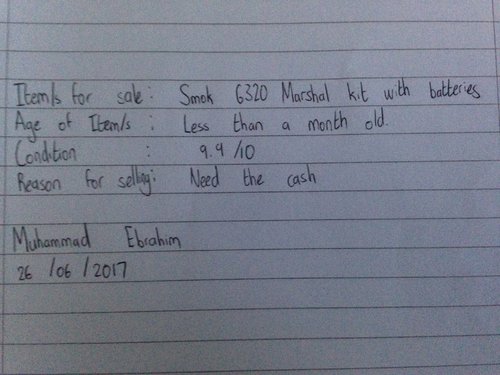 Item/s for sale: Smok G320 Marshal kit with batteries
Age of Item/s : Less than a month old.
Condition : 9.9/10
Reason for selling: Need the cash
Muhammad Ebrahim
26/06/2017